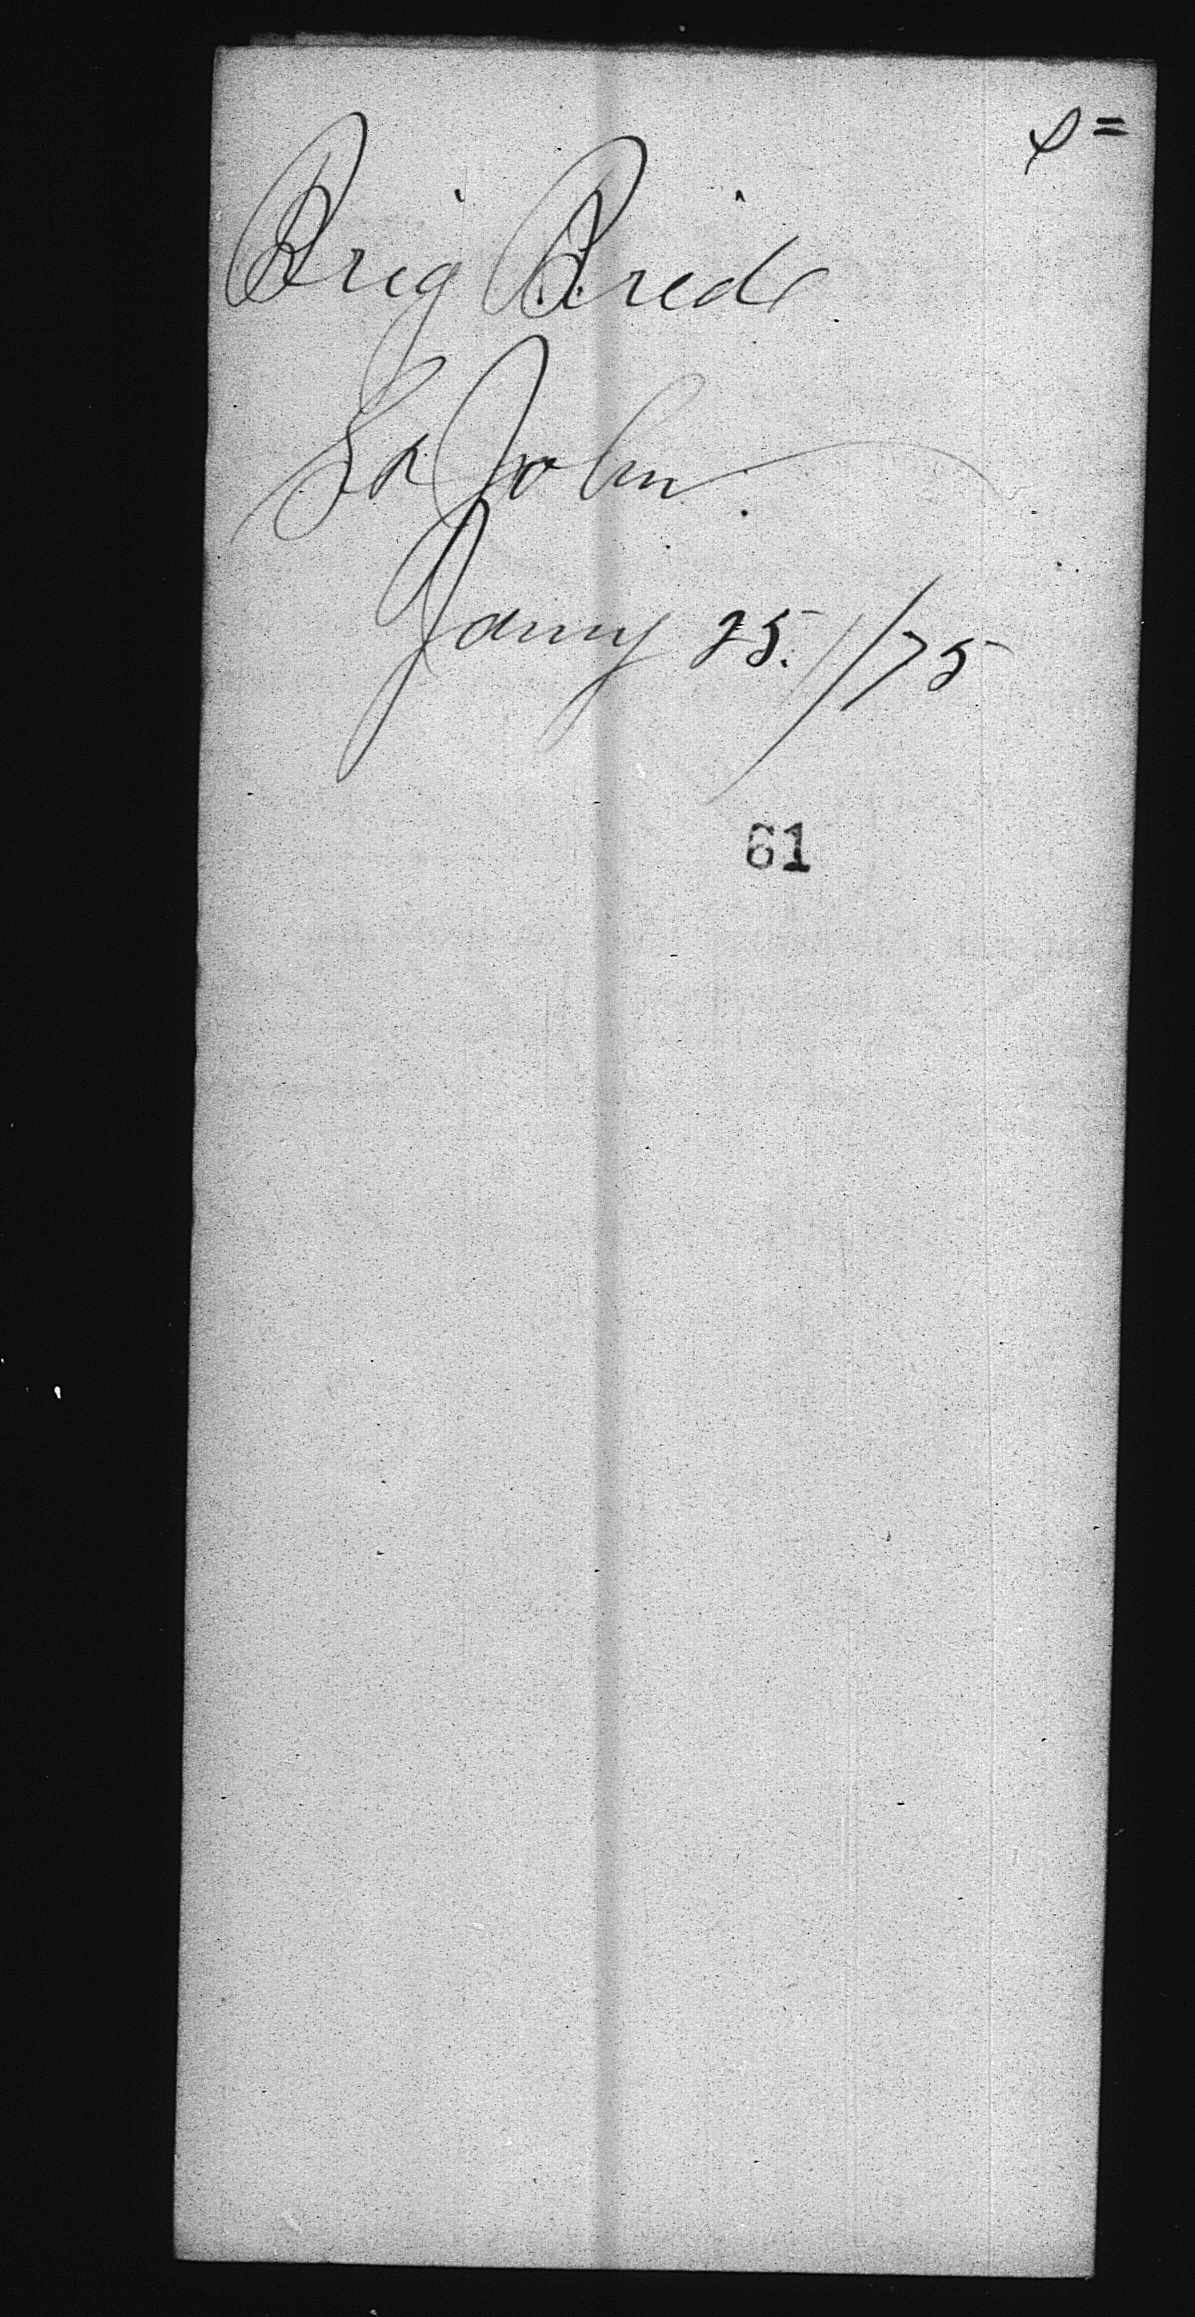 Brig Bird
St John
Jany 25./75
61